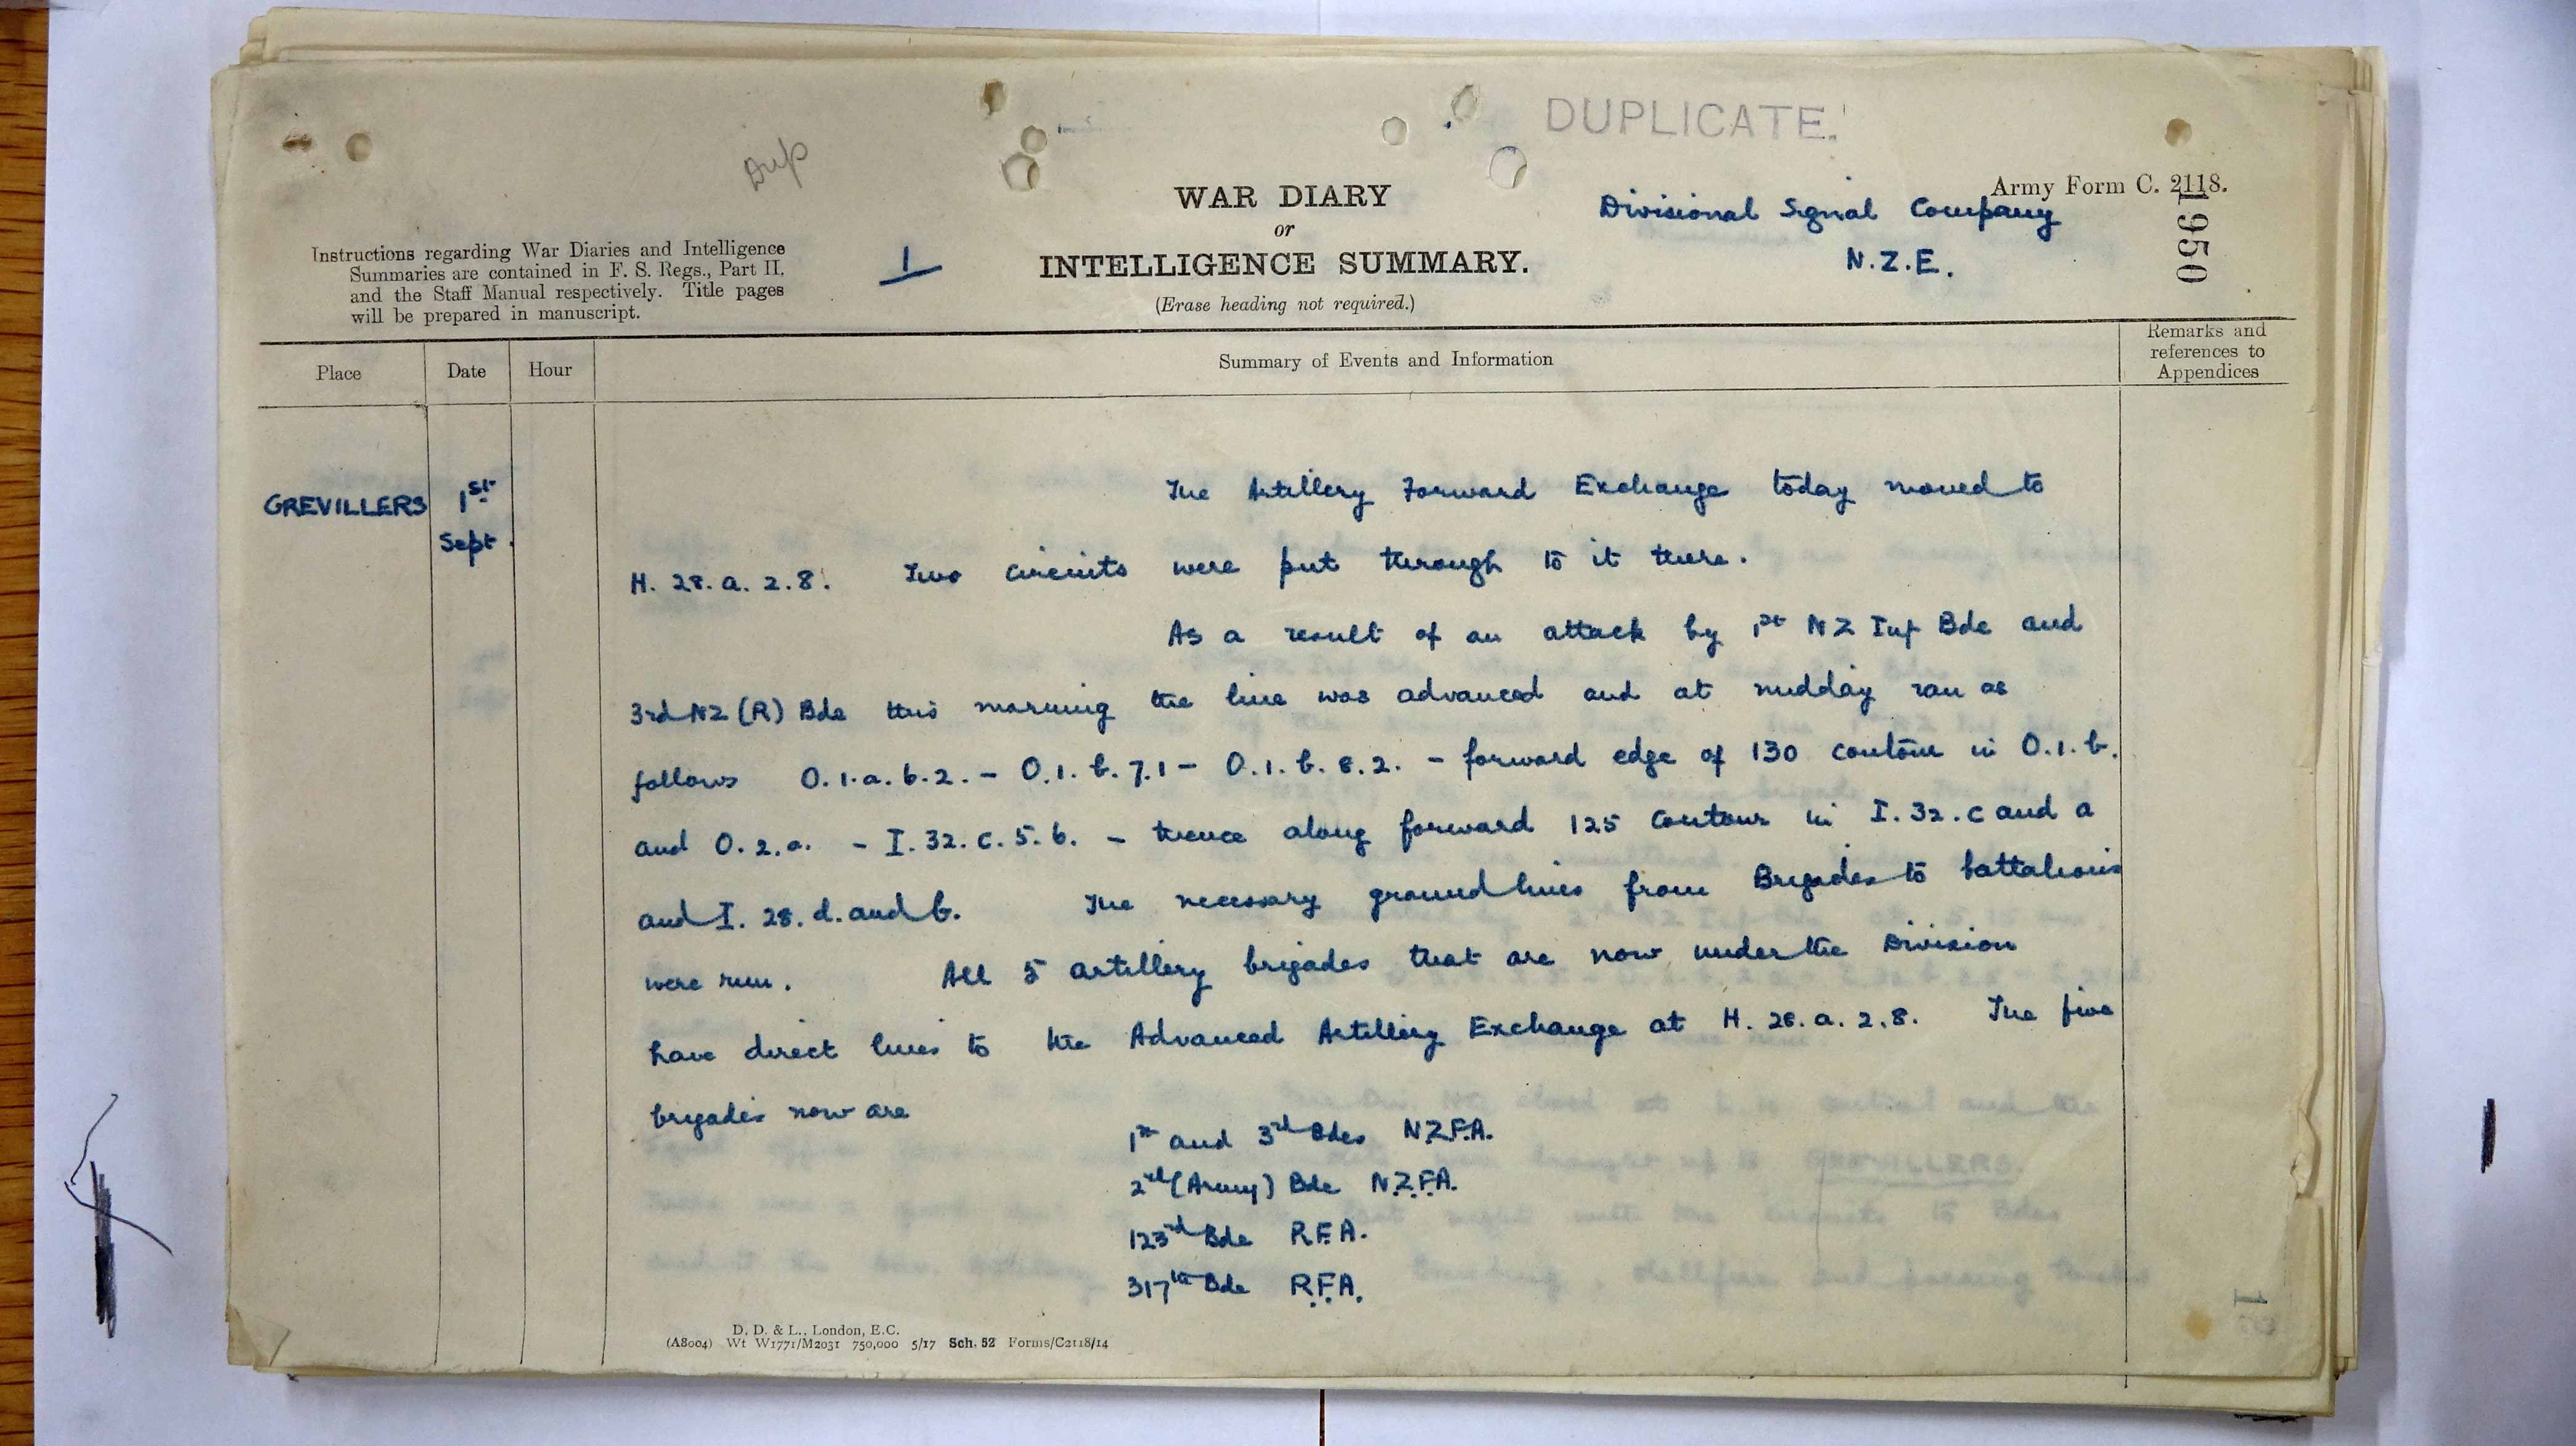 Dup
DUPLICATE.
WAR DIARY
or
INTELLIGENCE SUMMARY.
(Erase heading not required.)
Army Form C. 2118.
Divisional Signal Company
N.Z.E.
1950
Instructions regarding War Diaries and Intelligence
Summaries are contained in F. S. Regs., Part II,
and the Staff Manual respectively. Title pages
will be prepared in manuscript.
1
Place
Date
Hour
Summary of Events and Information
Remarks and
references to
Appendices
GREVILLERS
1st
Sept.
The Artillery Forward Exchange today moved to
H. 28. a. 2. 8. Two circuits were put through to it there.
As a result of an attack by 1st NZ Inf Bde and
3rd NZ (R) Bde this morning the line was advanced and at midday ran as
follows O. 1. a. 6. 2. - O. 1. b. 7. 1 - O. 1. b. 8. 2. - forward edge of 130 contour in O. 1. b.
and O. 2. a. - I. 32. c. 5. 6. - thence along forward 125 contour in I. 32. c and a
and I. 28. d. and b. The necessary ground lines from Brigades to battalions
were run. All 5 artillery brigades that are now under the Division
have direct lines to the Advanced Artillery Exchange at H. 28. a. 2. 8. The five
brigades now are
1st and 3rd Bdes N.Z.F.A.
2nd (Army) Bde N.Z.F.A.
123rd Bde R.F.A.
317th Bde R.F.A.
D. D. & L., London, E.C.
(A8004) Wt W1771/M2031 750,000 5/17 Sch. 52 Forms/C2118/14